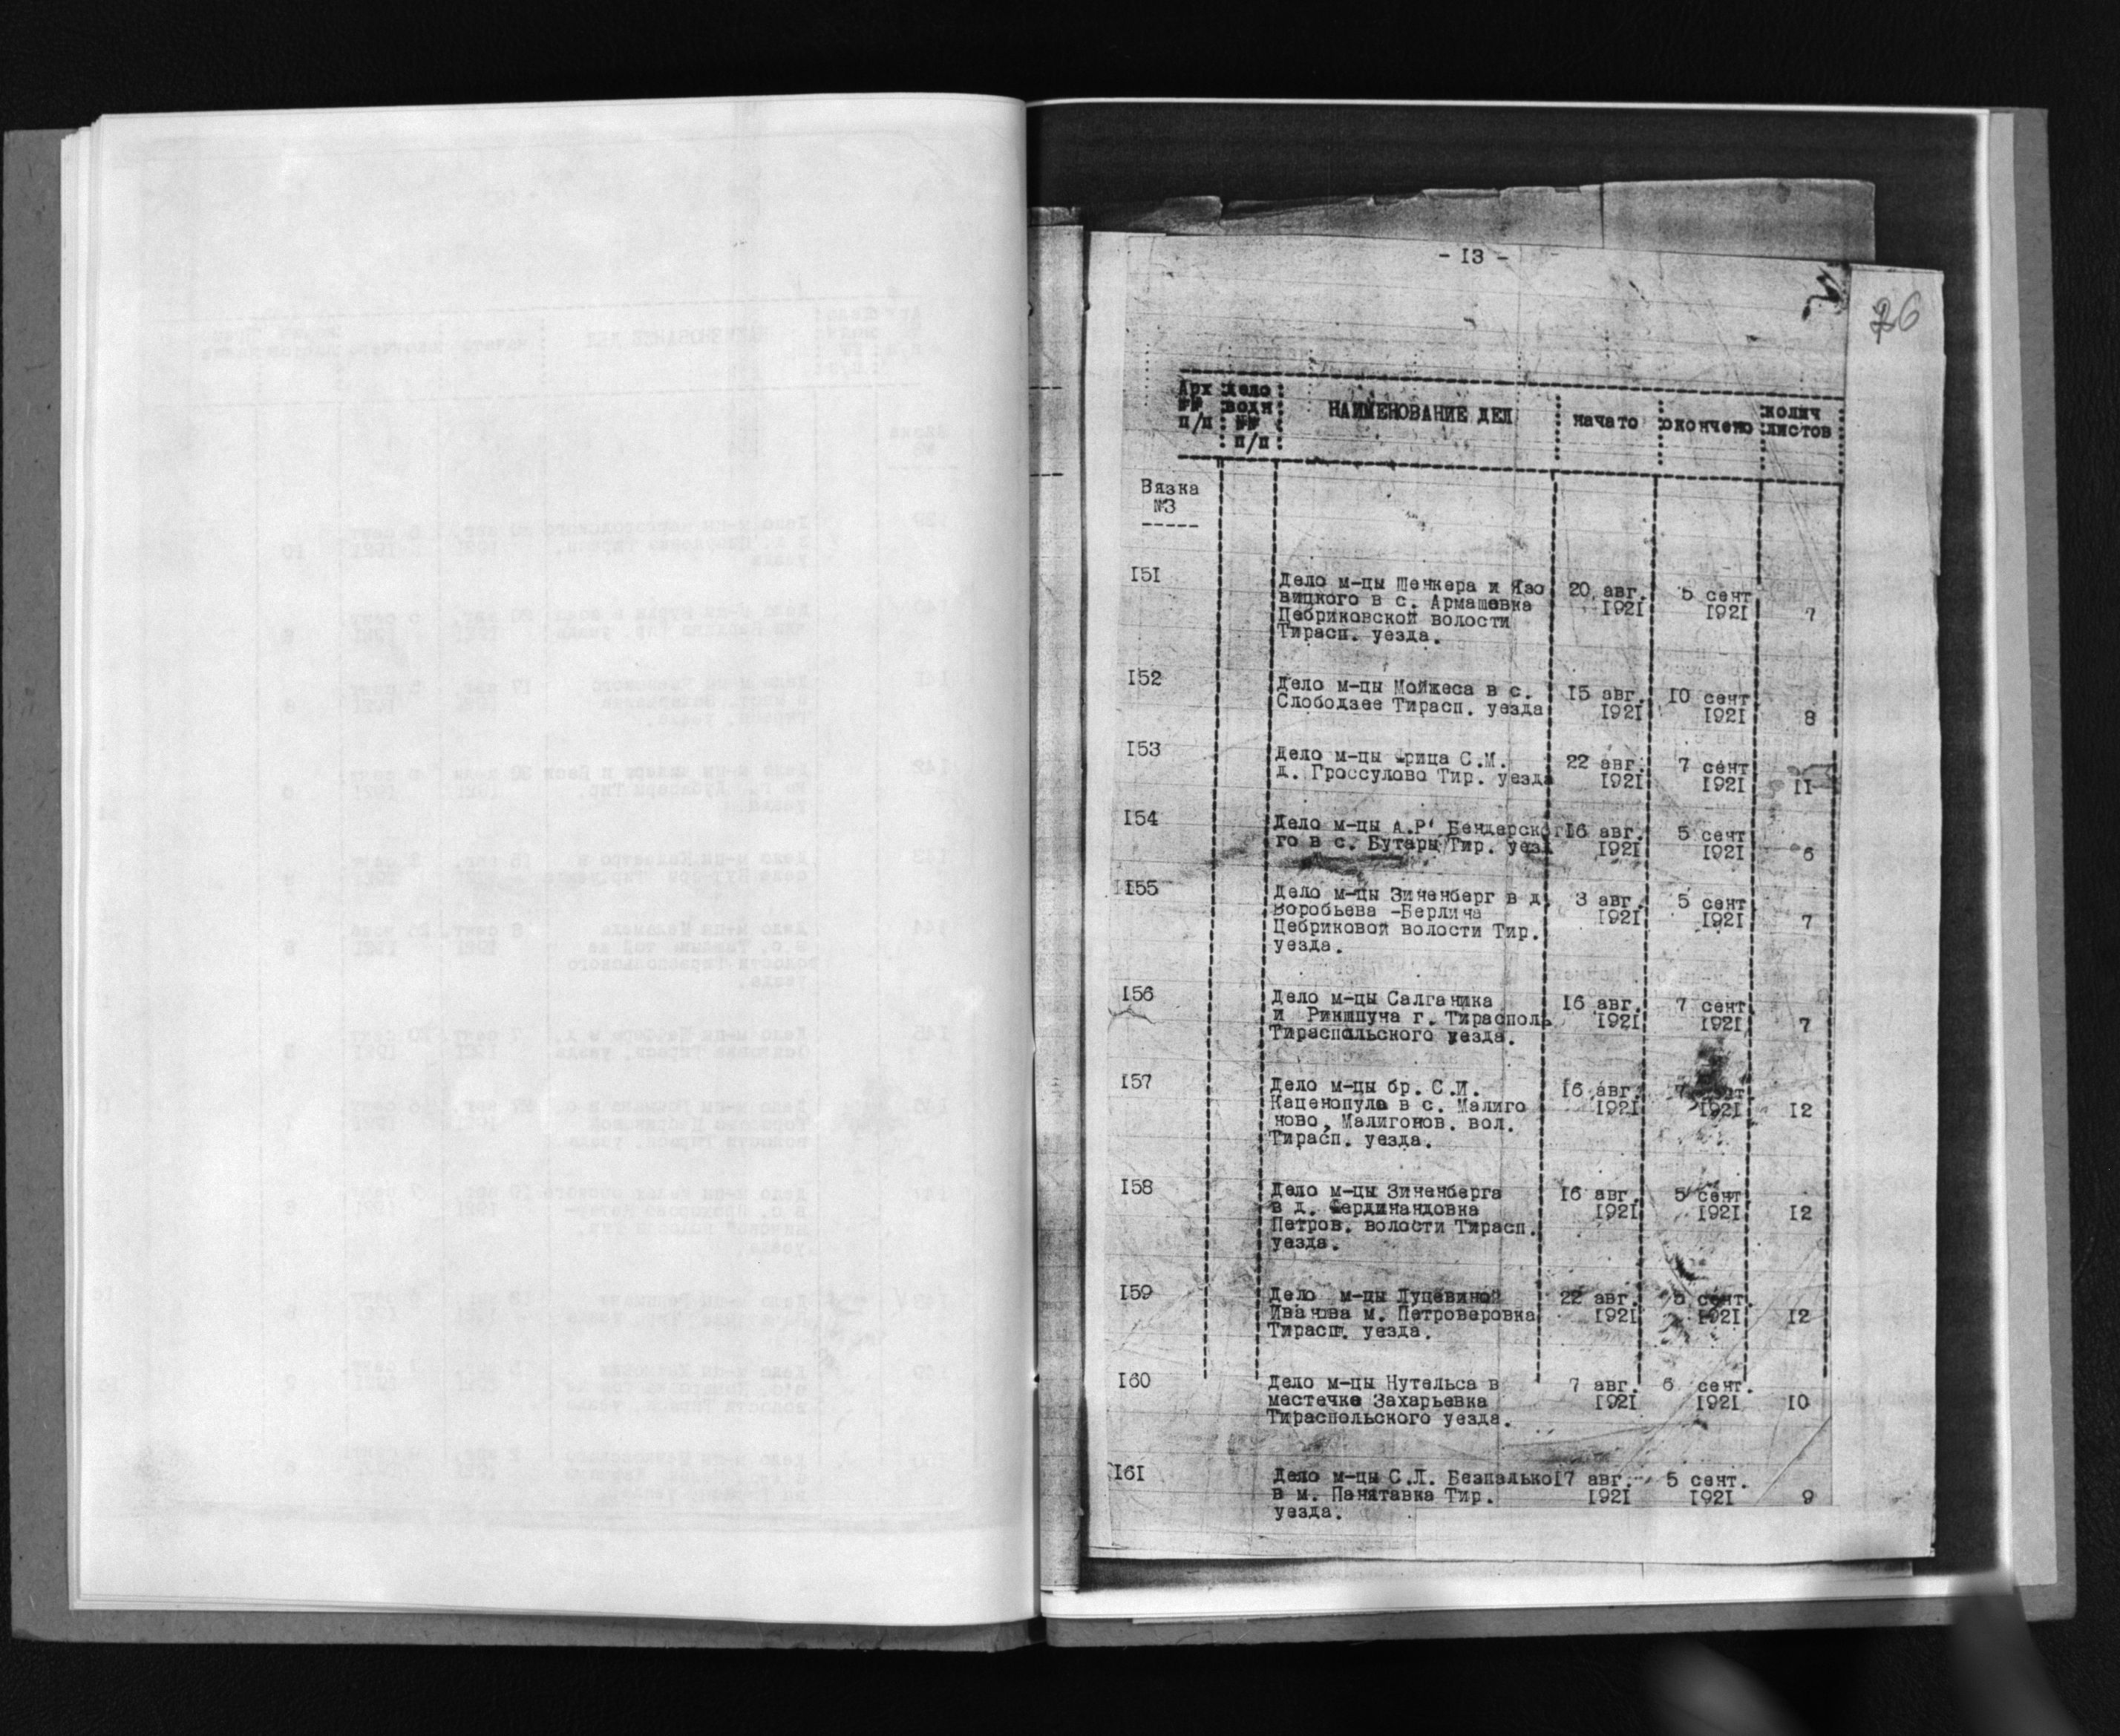 - I3 -
26
Арх дело НАИМЕНОВАНИЕ ДЕЛ начато окончено колич
№№ водн листов
п/п №№
п/п
Вязка
№3
-----
I5I Дело м-цы Шенкера и Язо 20 авг. 5 сент
вицкого в с. Армашевка I92I I92I 7
Цебриковской волости
Тирасп. уезда.
I52 Дело м-цы Мойжеса в с. I5 авг. I0 сент
Слободзее Тирасп. уезда I92I I92I 8
I53 Дело м-цы Фрица С.М. 22 авг. 7 сент
д. Гроссулово Тир. уезда I92I I92I II
I54 Дело м-цы А.Р. Бендерског I6 авг. 5 сент
го в с. Бутары Тир. уезд I92I I92I 6
I55 Дело м-цы Зиненберг в д. 3 авг. 5 сент
Воробьева -Берлина I92I I92I 7
Цебриковой волости Тир.
уезда.
I56 Дело м-цы Салганика I6 авг. 7 сент
и Рикшпуна г. Тирасполь I92I I92I 7
Тираспольского уезда.
I57 Дело м-цы бр. С.И. I6 авг. 7
Каценопула в с. Малиго I92I I92I I2
ново, Малигонов. вол.
Тирасп. уезда.
I58 Дело м-цы Зиненберга I6 авг. 5 сент
в д. Фердинандовка I92I I92I I2
Петров. волости Тирасп.
уезда.
I59 Дело м-цы Луцевиной 22 авг. 5 сент.
Иванова м. Петроверовка I92I I92I I2
Тирасп. уезда.
I60 Дело м-цы Нутельса в 7 авг. 6 сент.
местечке Захарьевка I92I I92I I0
Тираспольского уезда.
I6I Дело м-цы С.Л. Безпалько I7 авг. 5 сент.
в м. Панятавка Тир. I92I I92I 9
уезда.